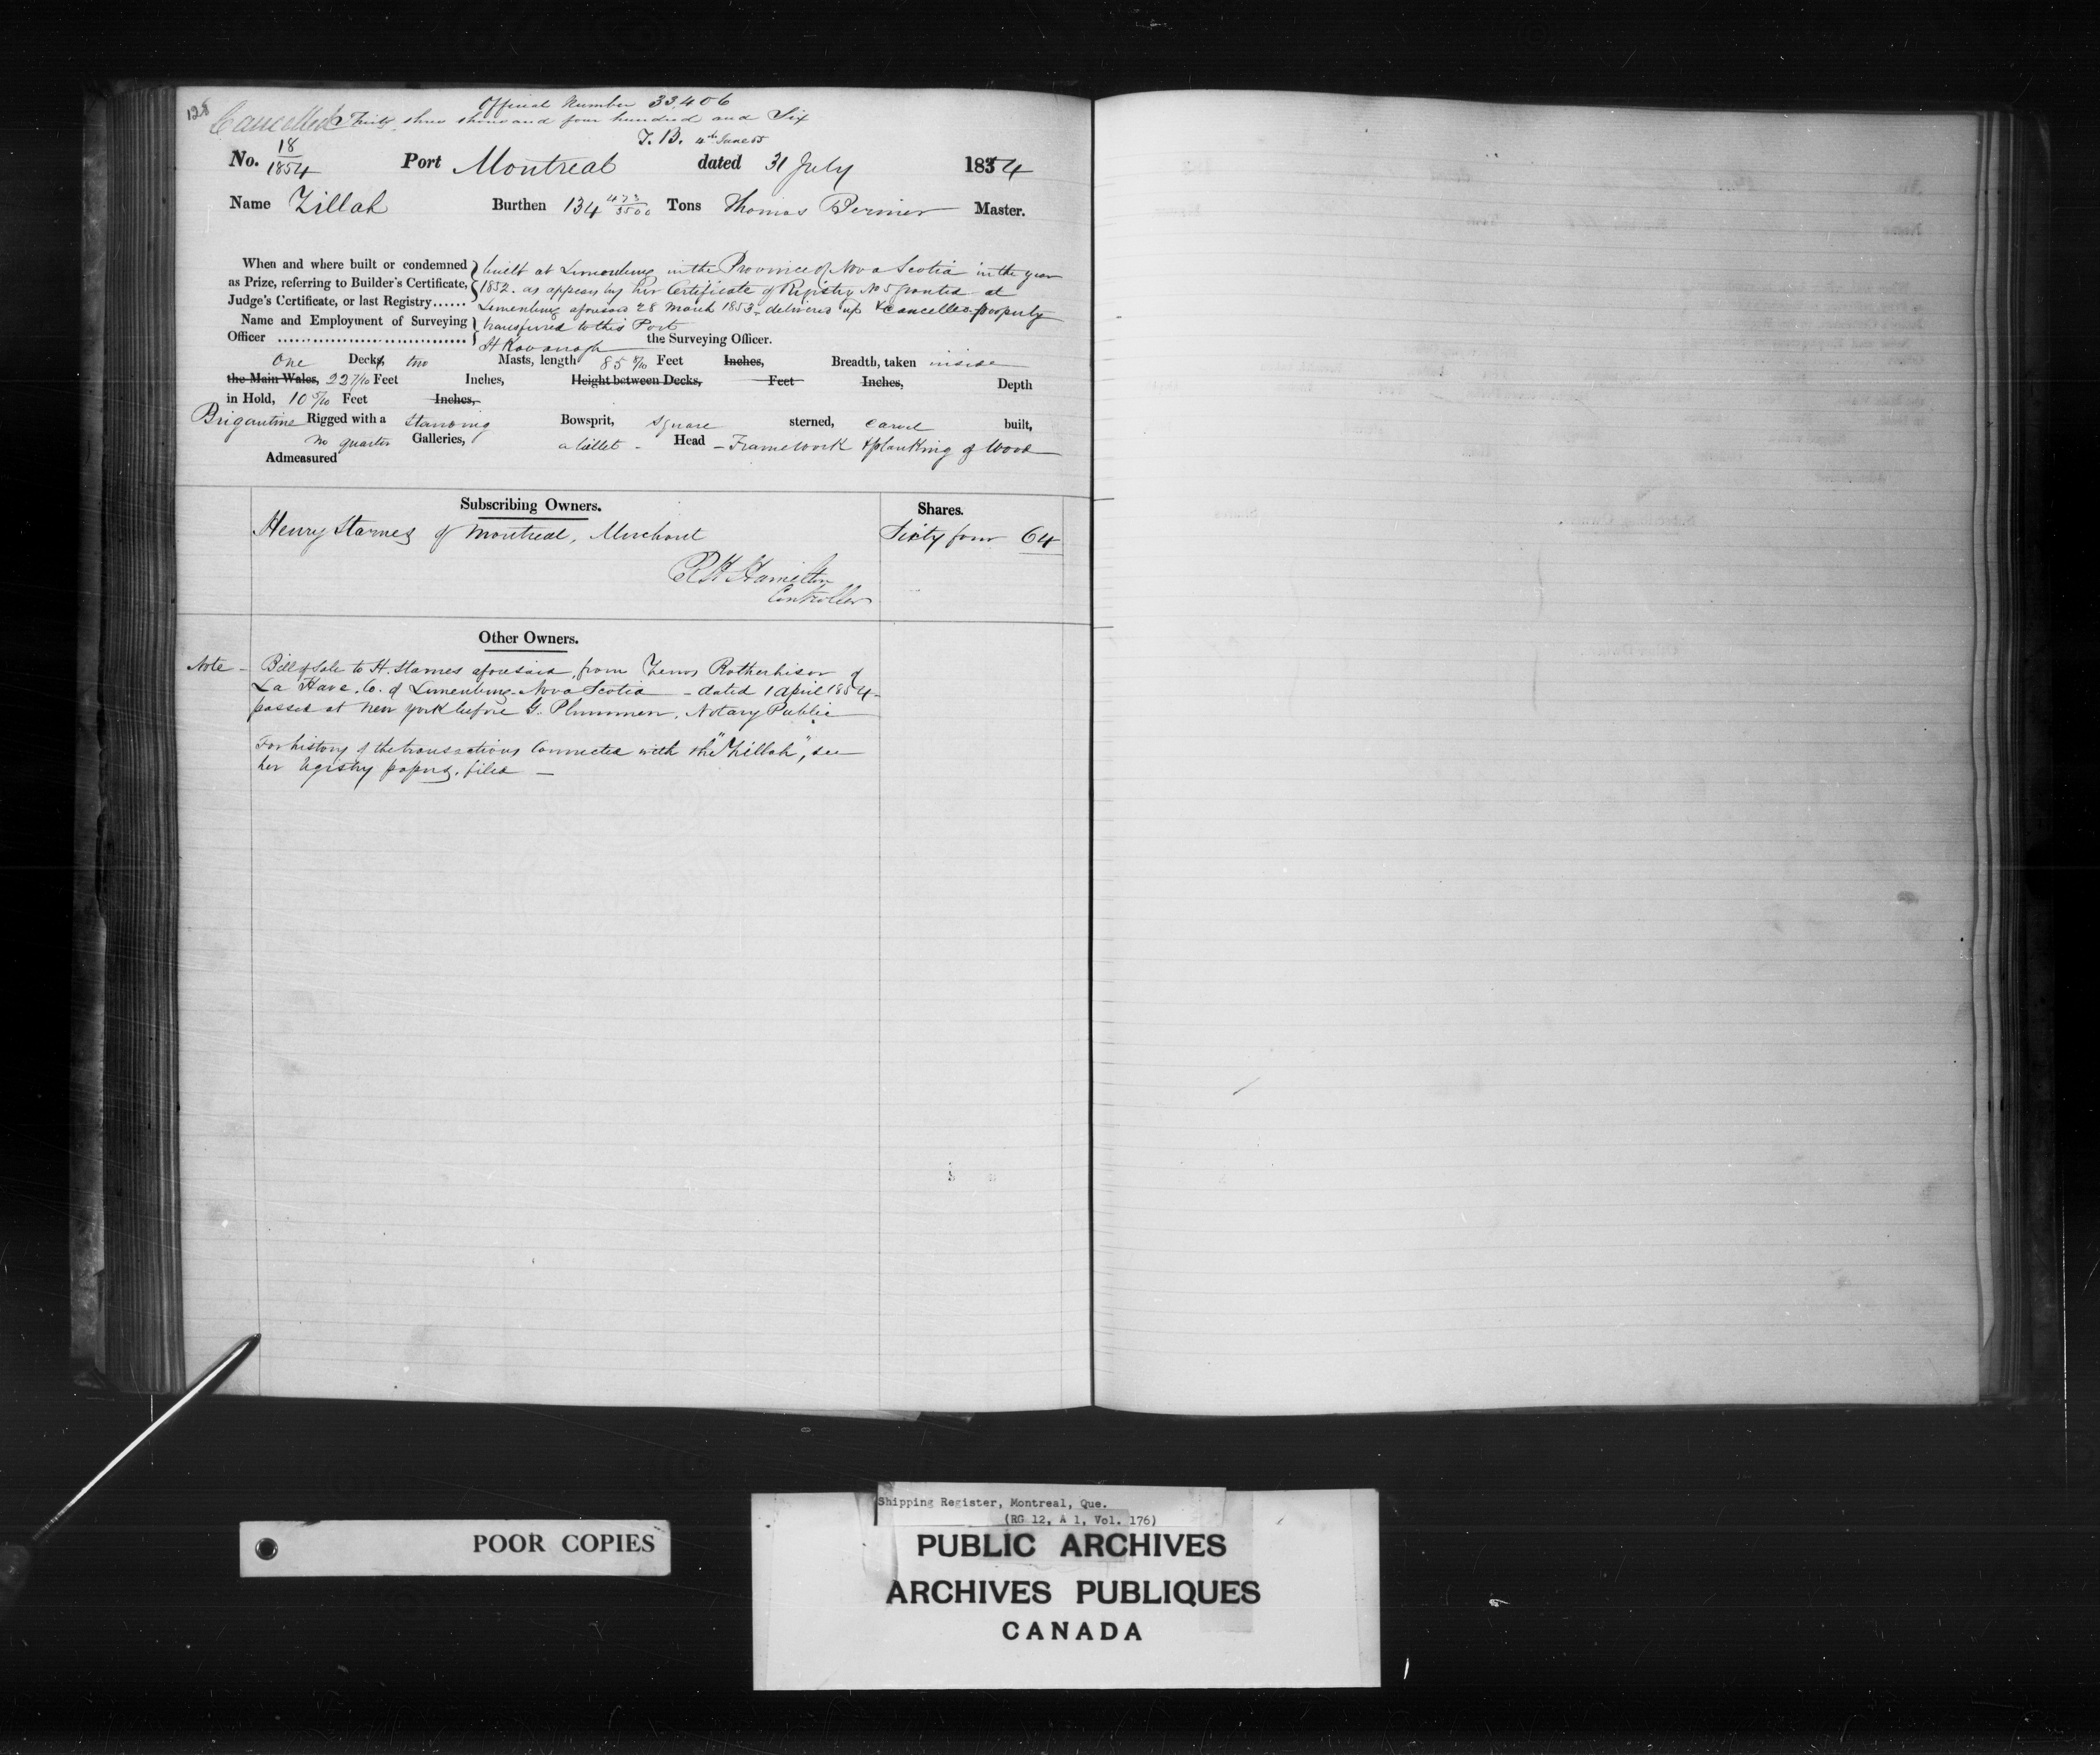 128
Official Number 33,406
Cancelled Thirty three thousand four hundred and Six
T. B. 4th June 55
No. 18/1854 Port Montreal dated 31 July 1854
Name Zillah Burthen 134 473/3500 Tons Thomas Master.
When and where built or condemned
as Prize, referring to Builder's Certificate,
Judge's Certificate, or last Registry......
built at Lunenburg in the Province of Nova Scotia in the year
1852. as appears by her Certificate of Registry No 5 granted at
Lunenburg aforesaid 28 March 1853 - delivered up & cancelled property
Name and Employment of Surveying
Officer
transferred to this Port
H Kavanagh the Surveying Officer.
One Decks, two Masts, length 85 8/10 Feet Inches, Breadth, taken inside
the Main Wales, 22 7/10 Feet Inches, Height between Decks, Feet Inches, Depth
in Hold, 10 5/10 Feet Inches,
Brigantine Rigged with a standing Bowsprit, square sterned, carvel built,
no quarter Galleries, a billet - Head - Framework & planking of Wood
Admeasured
Subscribing Owners. Shares.
Henry Starnes of Montreal, Merchant Sixty four 64
R H Hamilton
Controller
Other Owners.
Note - Bill of Sale to H. Starnes aforesaid, from of
La Have. Co. of Lunenburg - Nova Scotia - dated 1 April 1854 -
passed at New York before G. Notary Public
For history of the transactions connected with the "Zillah", see
her registry papers, filed -
POOR COPIES
Shipping Register, Montreal, Que.
(RG 12, A 1, Vol. 176)
PUBLIC ARCHIVES
ARCHIVES PUBLIQUES
CANADA